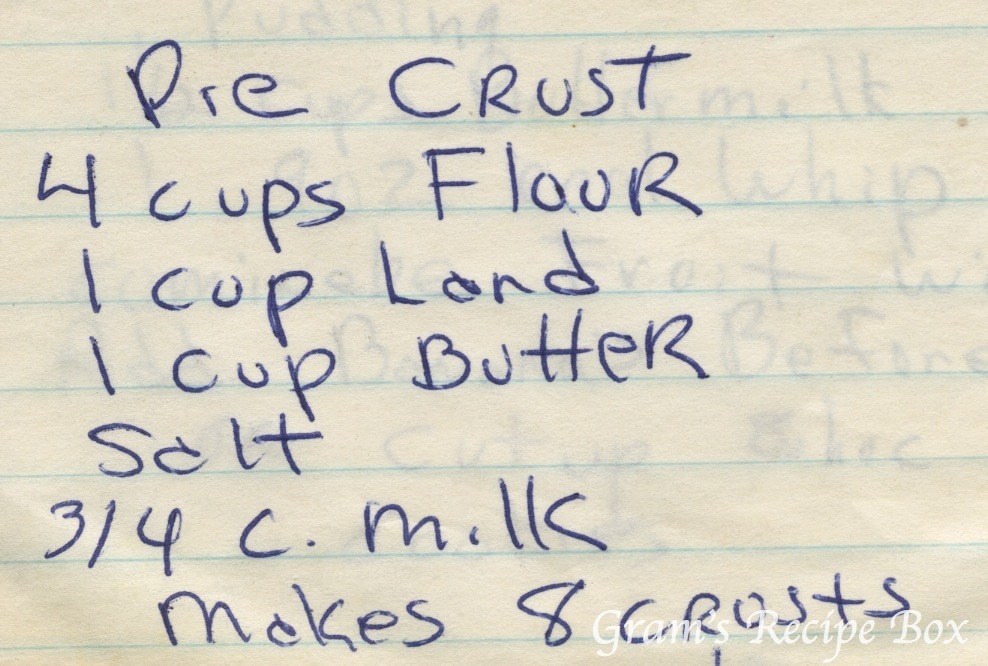 Pie CRUST
4 cups FlouR
1 cup Lard
1 cup ButteR
Salt
3/4 c. milk
makes 8 crusts
Gram's Recipe Box